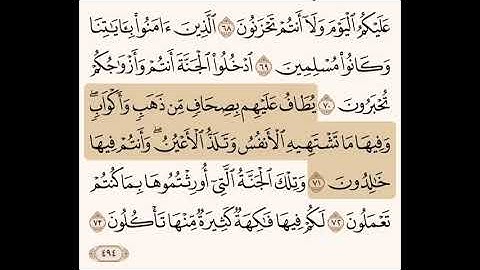 عَلَيْكُمُ ٱلْيَوْمَ وَلَآ أَنتُمْ تَحْزَنُونَ ٦٨ ٱلَّذِينَ ءَامَنُوا۟ بِـَٔايَـٰتِنَا
وَكَانُوا۟ مُسْلِمِينَ ٦٩ ٱدْخُلُوا۟ ٱلْجَنَّةَ أَنتُمْ وَأَزْوَٰجُكُمْ
تُحْبَرُونَ ٧٠ يُطَافُ عَلَيْهِم بِصِحَافٍ مِّن ذَهَبٍ وَأَكْوَابٍ ۖ
وَفِيهَا مَا تَشْتَهِيهِ ٱلْأَنفُسُ وَتَلَذُّ ٱلْأَعْيُنُ ۖ وَأَنتُمْ فِيهَا
خَـٰلِدُونَ ٧١ وَتِلْكَ ٱلْجَنَّةُ ٱلَّتِىٓ أُورِثْتُمُوهَا بِمَا كُنتُمْ
تَعْمَلُونَ ٧٢ لَكُمْ فِيهَا فَـٰكِهَةٌ كَثِيرَةٌ مِّنْهَا تَأْكُلُونَ ٧٣
٤٩٤